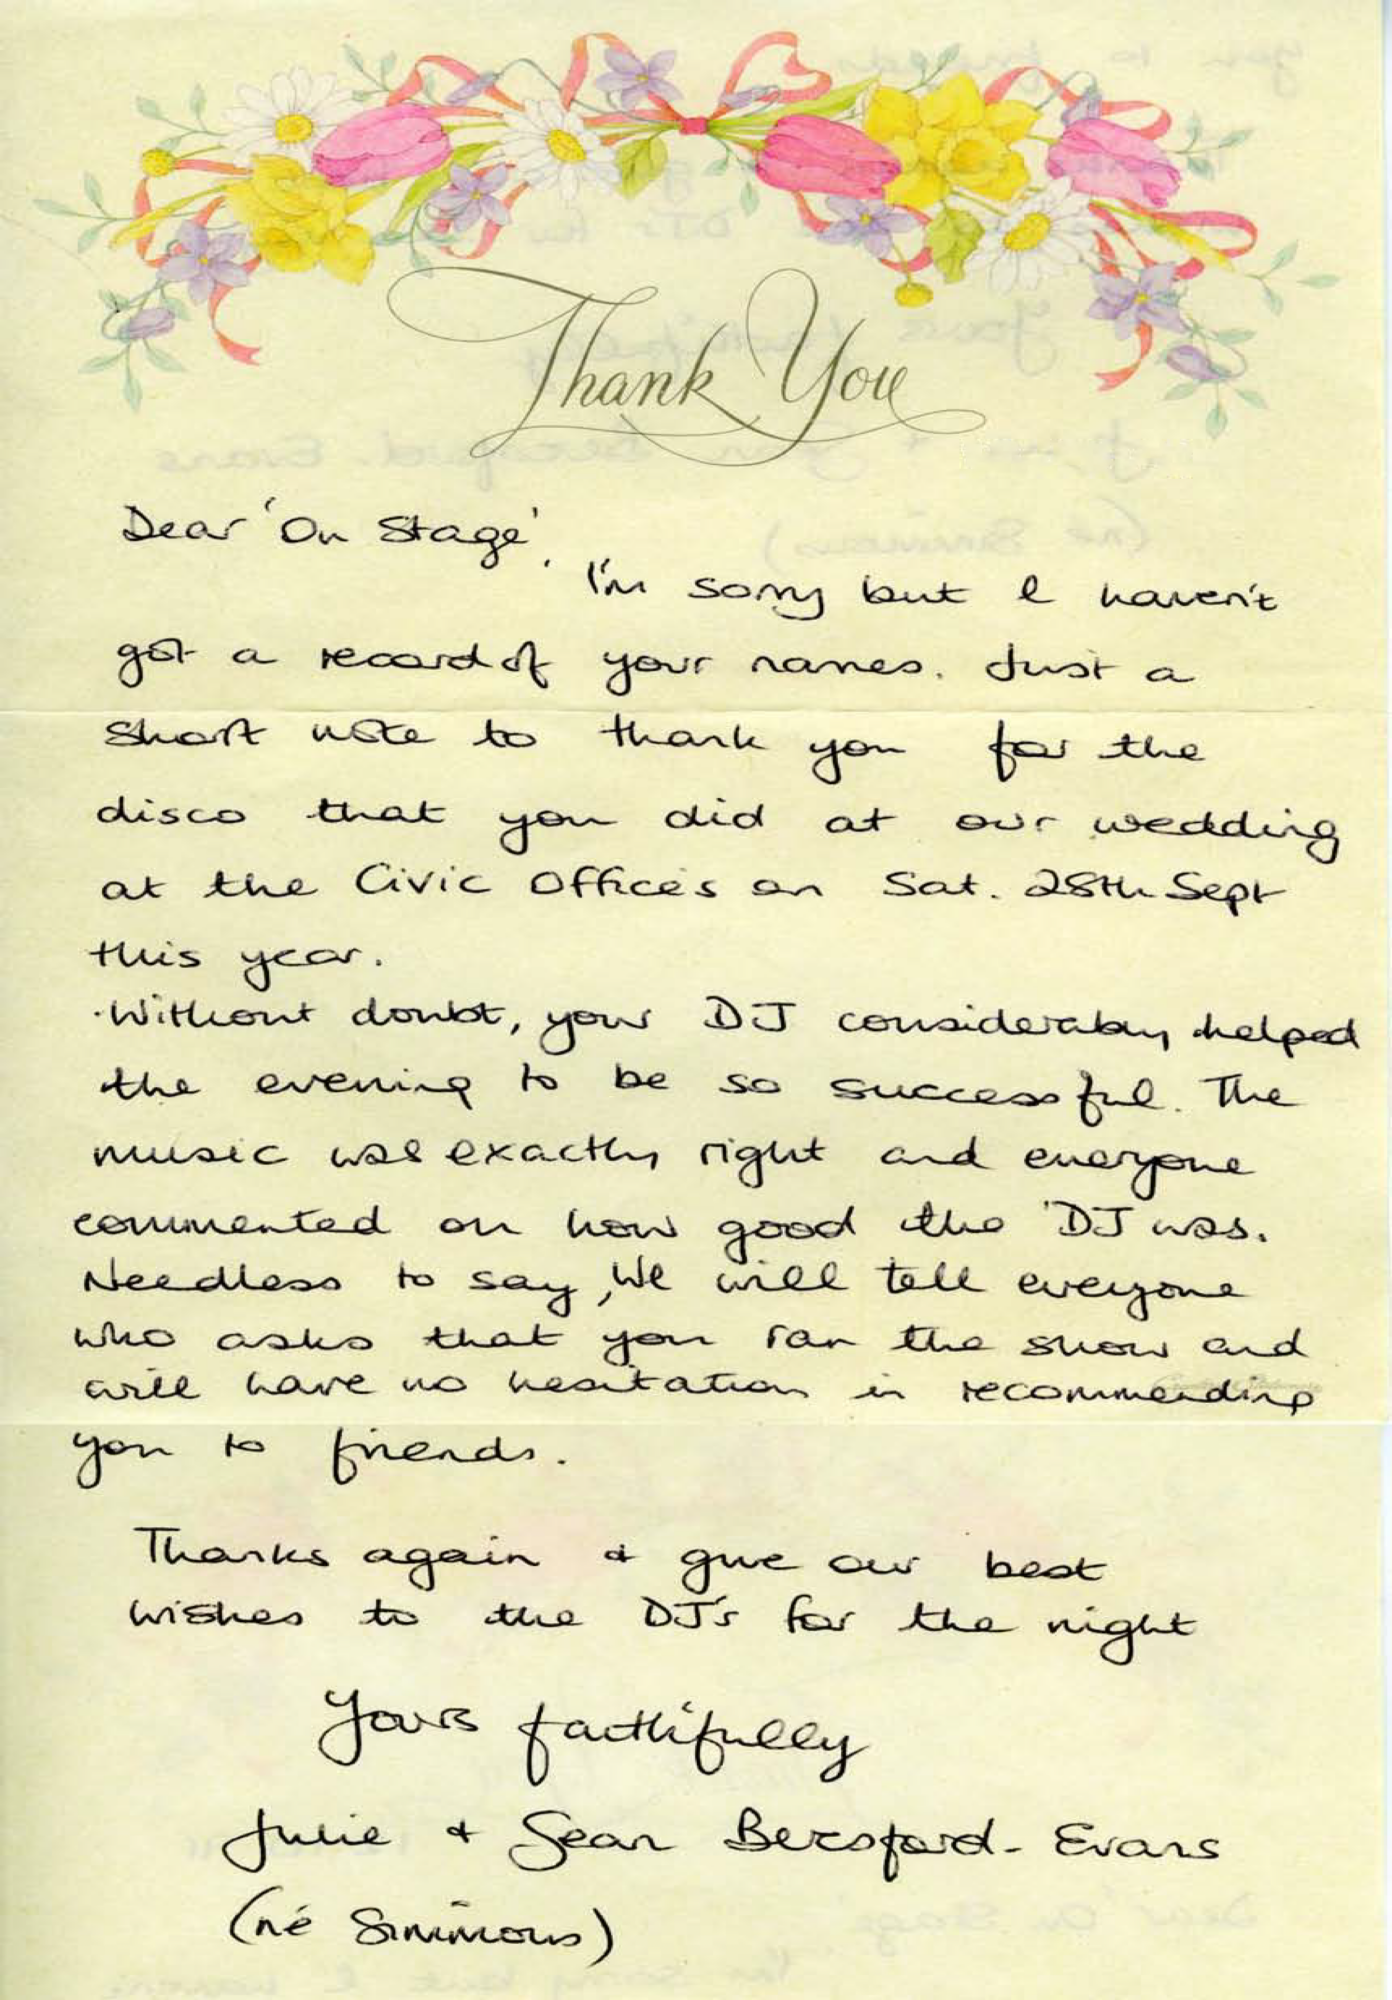 Thank You
Dear 'On Stage',
I'm sorry but I haven't
got a record of your names. Just a
short note to thank you for the
disco that you did at our wedding
at the Civic Offices on Sat. 28th Sept
this year.
Without doubt, your DJ considerably helped
the evening to be so successful. The
music was exactly right and everyone
commented on how good the DJ was.
Needless to say, We will tell everyone
who asks that you ran the show and
will have no hesitation in recommending
you to friends.
Thanks again & give our best
wishes to the DJ's for the night
Yours faithfully
Julie & Sean Beresford-Evans
(né Simmons)